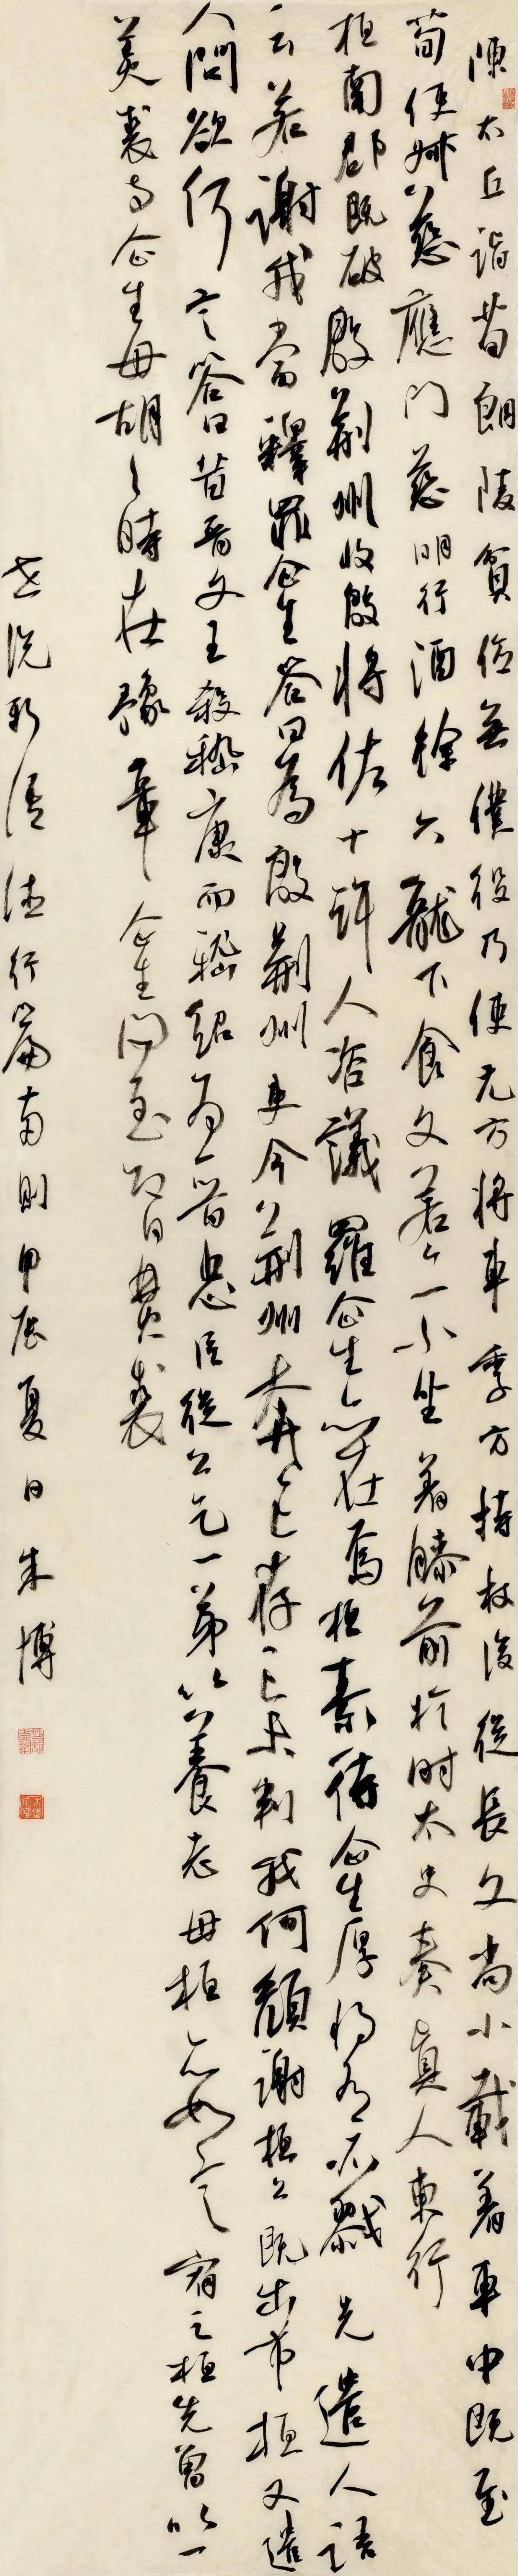 陳太丘詣荀朗陵貧儉無僕役乃使元方將車季方持杖後從長文尚小載著車中既至
荀使叔慈應門慈明行酒餘六龍下食文若亦小坐著膝前於時太史奏真人東行
桓南郡既破殷荊州收殷將佐十許人咨議羅企生亦在焉桓素待企生厚將有所戮先遣人語
云若謝我當釋罪企生答曰為殷荊州吏今荊州奔亡存亡未判我何顏謝桓公既出市桓又遣
人問欲何言答曰昔晉文王殺嵇康而嵇紹為晉忠臣從公乞一弟以養老母桓亦如言宥之桓先曾以一
羔裘與企生母胡胡時在豫章企生問至即日焚裘
世說新語德行篇兩則甲辰夏日朱博